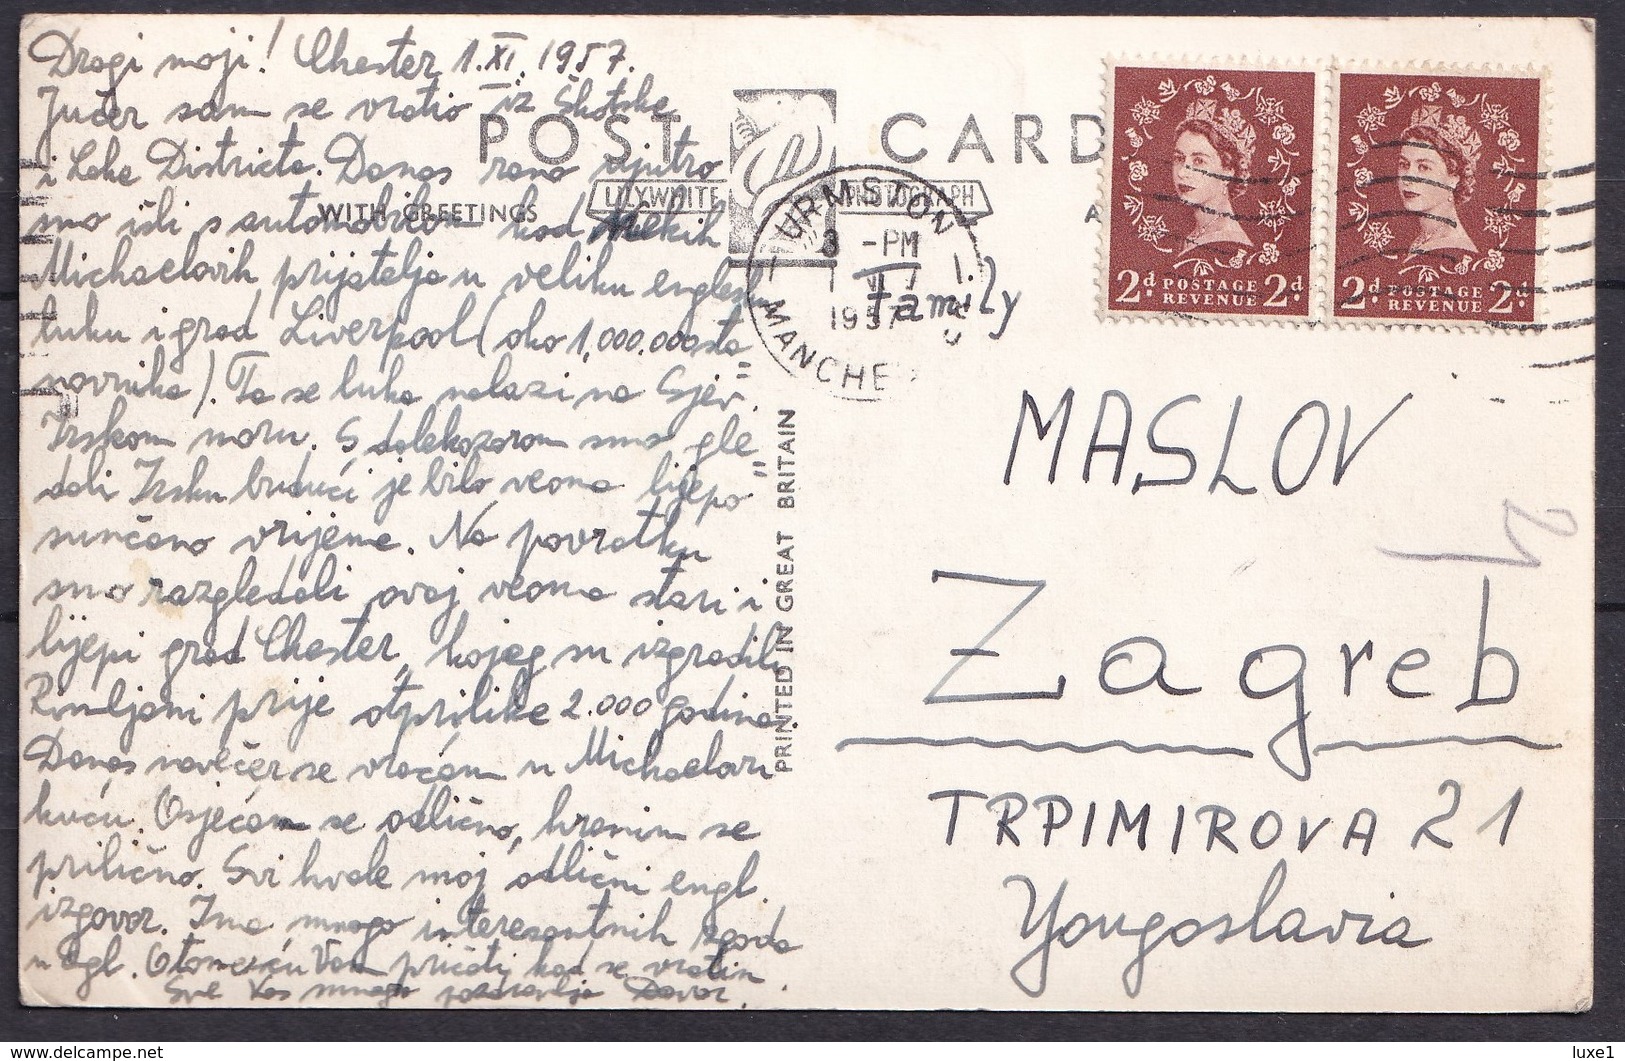 Dragi moji! Chester 1.XI.1957.
Jučer sam se vratio iz Škotske
i Lake Districta. Danas rano ujutro
smo išli s automobilom kod nekih
Michaelovih prijatelja u veliku englesku
luku i grad Liverpool (oko 1,000.000 sta=
novnika). Ta se luka nalazi na Sjev.
Irskom moru. S dalekozorom smo gle=
dali Irsku budući je bilo veoma lijepo
sunčano vrijeme. Na povratku
smo razgledali ovaj veoma stari i
lijepi grad Chester, kojeg su izgradili
Rimljani prije otprilike 2.000 godina.
Danas navečer se vraćam u Michaelovu
kuću. Osjećam se odlično, hranim se
prilično. Svi hvale moj odlični engl.
izgovor. Ima mnogo interesantnih zgoda
u Egl. O tome ću Vam pričati kad se vratim
Sve Vas mnogo pozdravlja Davor.
POST CARD
WITH GREETINGS
LILYWHITE PHOTOGRAPH
A
PRINTED IN GREAT BRITAIN
URMSTON
8 - PM
1957
MANCHE
2d POSTAGE REVENUE 2d
2d POSTAGE REVENUE 2d
Family
MASLOV
21
Zagreb
TRPIMIROVA 21
Yougoslavia
www.delcampe.net
luxe1